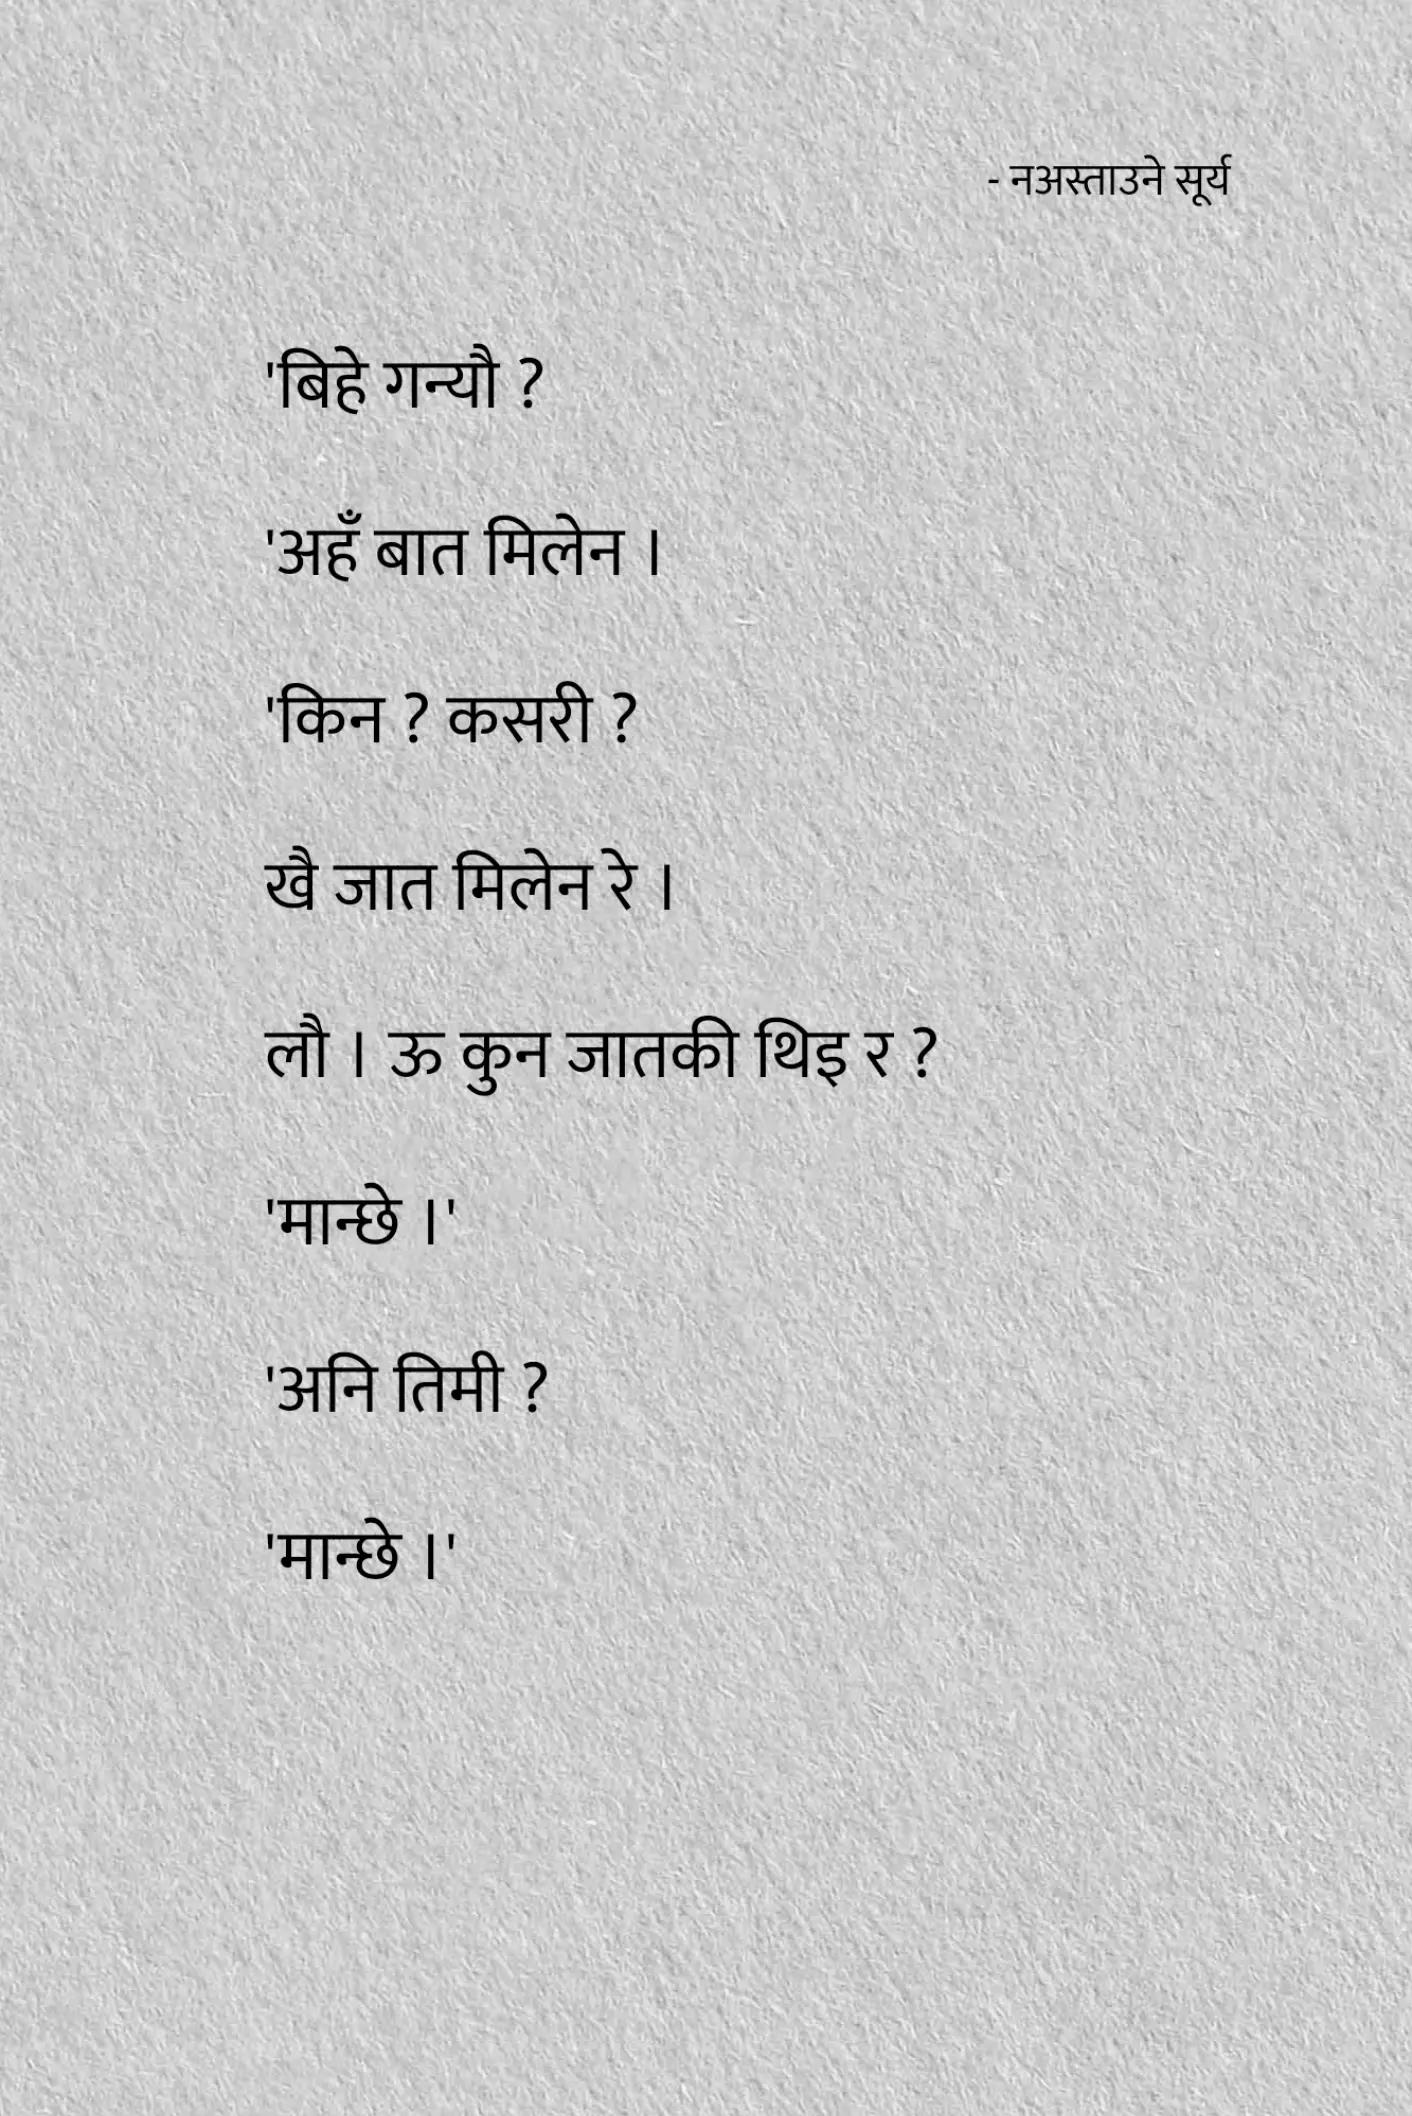 - नअस्ताउने सूर्य
'बिहे गन्यौ ?
'अहँ बात मिलेन ।
'किन ? कसरी ?
खै जात मिलेन रे ।
लौ । ऊ कुन जातकी थिइ र ?
'मान्छे ।'
'अनि तिमी ?
'मान्छे ।'